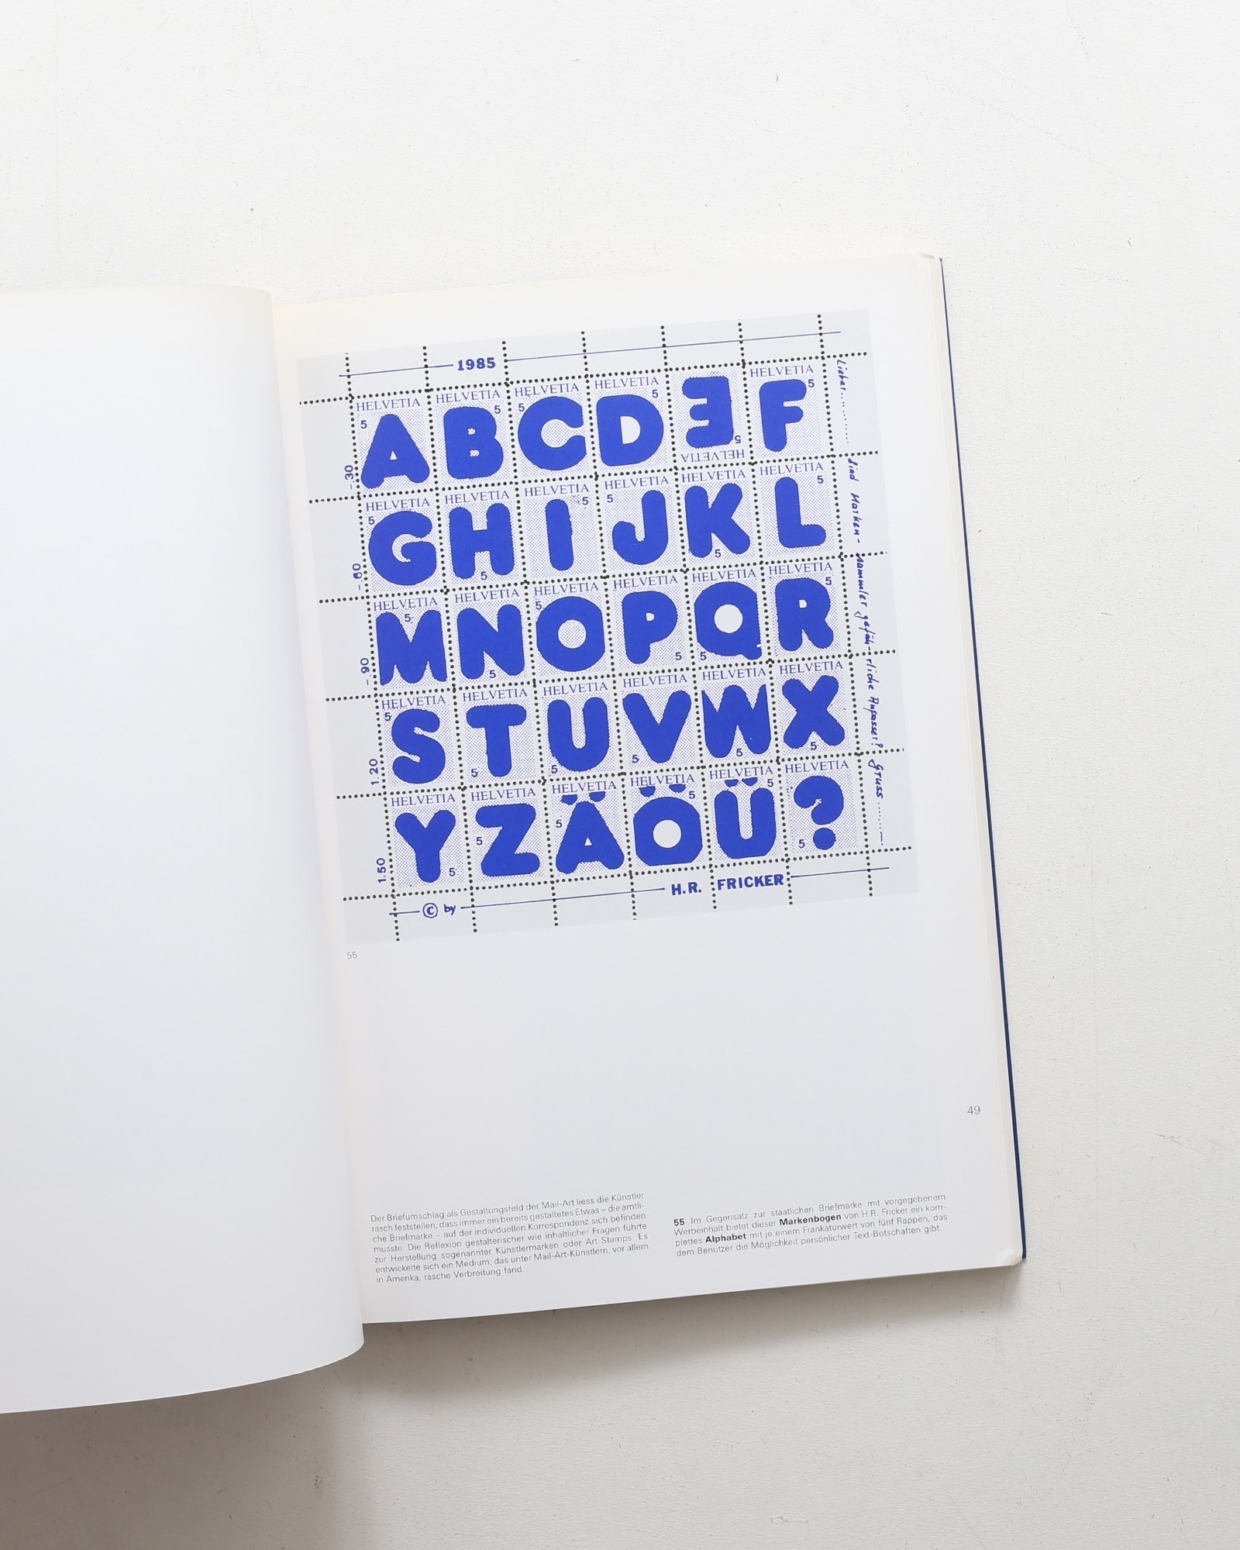 1985
HELVETIA HELVETIA HELVETIA HELVETIA HELVETIA
5 5 5 5 5
A B C D E F
5
HELVETIA
-.30
HELVETIA HELVETIA HELVETIA HELVETIA HELVETIA HELVETIA
5 5 5 5
G H I J K L
5 5
-.60
HELVETIA HELVETIA HELVETIA HELVETIA HELVETIA HELVETIA
5 5 5
M N O P Q R
5 5 5
-.90
HELVETIA HELVETIA HELVETIA HELVETIA HELVETIA HELVETIA
5
S T U V W X
5 5 5 5 5
1.20
HELVETIA HELVETIA HELVETIA HELVETIA HELVETIA HELVETIA
5 5 5 5
Y Z Ä Ö Ü ?
5 5
1.50
© by H.R. FRICKER
Lieber...........
Sind Marken-
sammler gefäh-
rliche Anpasser? Gruss ........
55
49
Der Briefumschlag als Gestaltungsfeld der Mail-Art liess die Künstler
rasch feststellen, dass immer ein bereits gestaltetes Etwas – die amtli-
che Briefmarke – auf der individuellen Korrespondenz sich befinden
musste. Die Reflexion gestalterischer wie inhaltlicher Fragen führte
zur Herstellung sogenannter Künstlermarken oder Art-Stamps. Es
entwickelte sich ein Medium, das unter Mail-Art-Künstlern, vor allem
in Amerika, rasche Verbreitung fand.
55 Im Gegensatz zur staatlichen Briefmarke mit vorgegebenem
Werbeinhalt bietet dieser Markenbogen von H.R. Fricker ein kom-
plettes Alphabet mit je einem Frankaturwert von fünf Rappen, das
dem Benutzer die Möglichkeit persönlicher Text-Botschaften gibt.